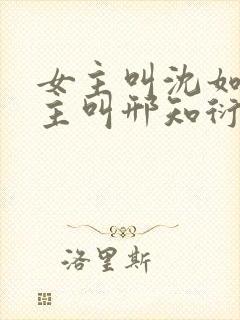 女主叫沈如
主叫邢知衍
洛里斯